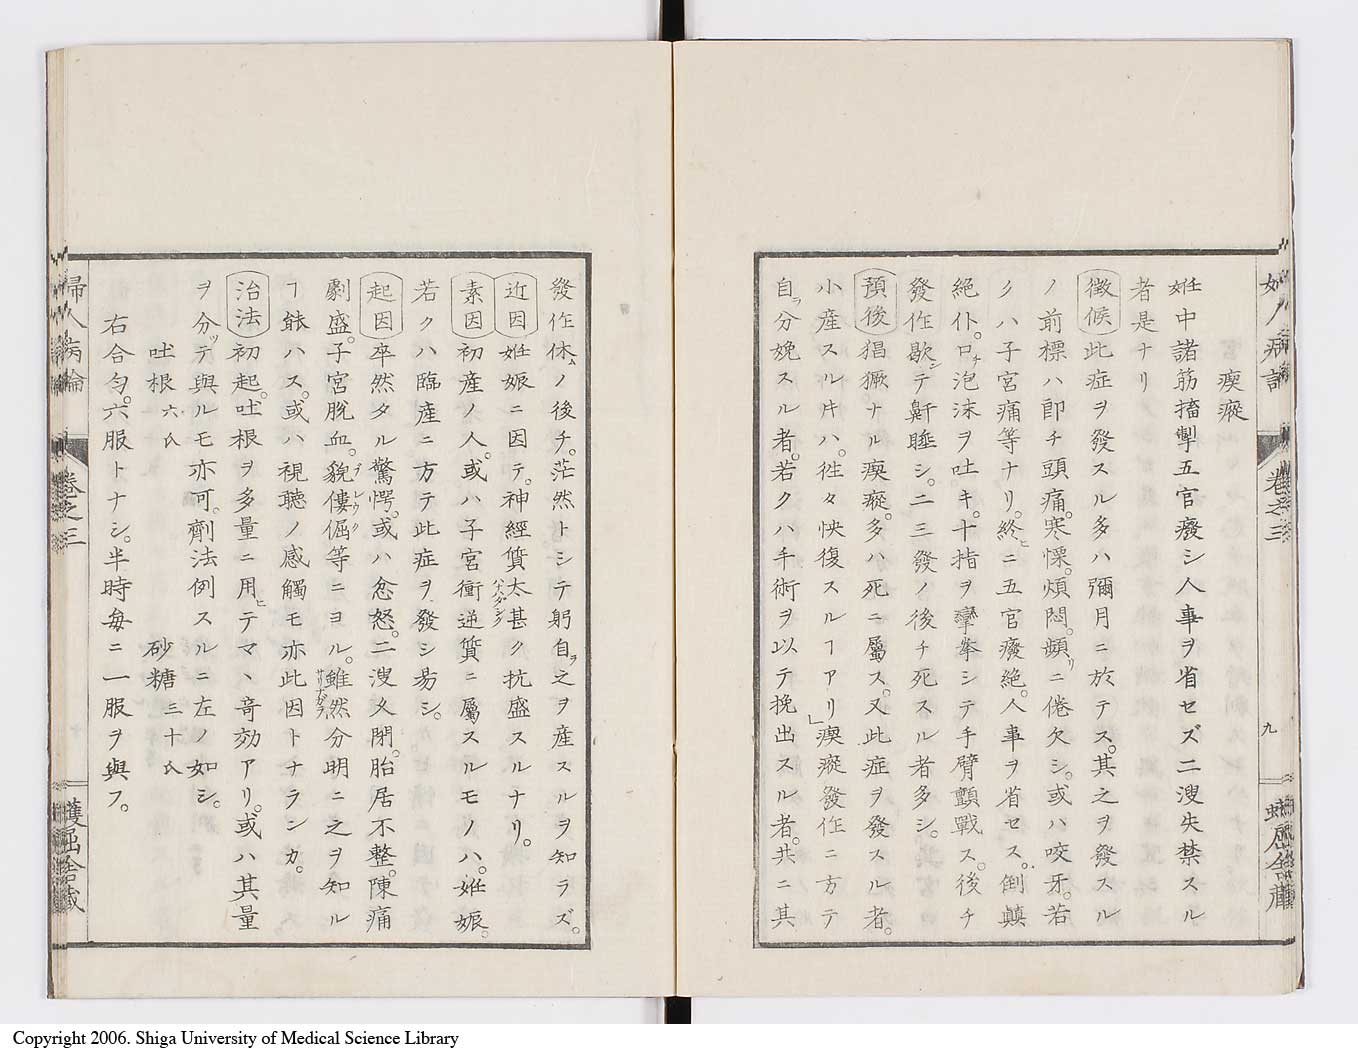 瘈瘲
姙中諸筋搐掣五官癈シ人事ヲ省セズ二溲失禁スル
者是ナリ
徴候 此症ヲ發スル多ハ彌月ニ於テス。其之ヲ發スル
ノ前標ハ卽チ頭痛。寒慄。煩悶。頻リニ倦欠シ。或ハ咬牙。若
クハ子宮痛等ナリ。終ヒニ五官癈絶。人事ヲ省セス。倒顚
絶仆。口チ泡沫ヲ吐キ。十指ヲ攣拳シテ手臂顫戰ス。後チ
發作歇シテ鼾睡シ。二三發ノ後チ死スル者多シ。
預後 猖獗ナル瘈瘲。多ハ死ニ屬ス。又此症ヲ發スル者。
小産スル片ハ。徃々快復スルヿアリ」瘈瘲發作ニ方テ
自ラ分娩スル者。若クハ手術ヲ以テ挽出スル者。共ニ其
婦人病論 卷之三 九
發作休ムノ後チ。茫然トシテ躬自ヲ之ヲ産スルヲ知ラズ。
近因 姙娠ニ因テ。神經質太甚ハナハダシク抗盛スルナリ。
素因 初産ノ人。或ハ子宮衝逆質ニ屬スルモノハ。姙娠。
若クハ臨産ニ方テ此症ヲ發シ易シ。
起因 卒然タル驚愕。或ハ忿怒。二溲久閉。胎居不整。陳痛
劇盛。子宮脱血。貌僂倔ブレウク等ニヨル。雖然サリナガラ分明ニ之ヲ知ル
ヿ能ハス。或ハ視聽ノ感觸モ亦此因トナランカ。
治法 初起。吐根ヲ多量ニ用ヒテマヽ竒効アリ。或ハ其量
ヲ分ッテ與ルモ亦可。劑法例スルニ左ノ如シ。
吐根 六氏 砂糖 三十氏
右合匀。六服トナシ。半時毎ニ一服ヲ與フ。
婦人病論 卷之三
Copyright 2006. Shiga University of Medical Science Library